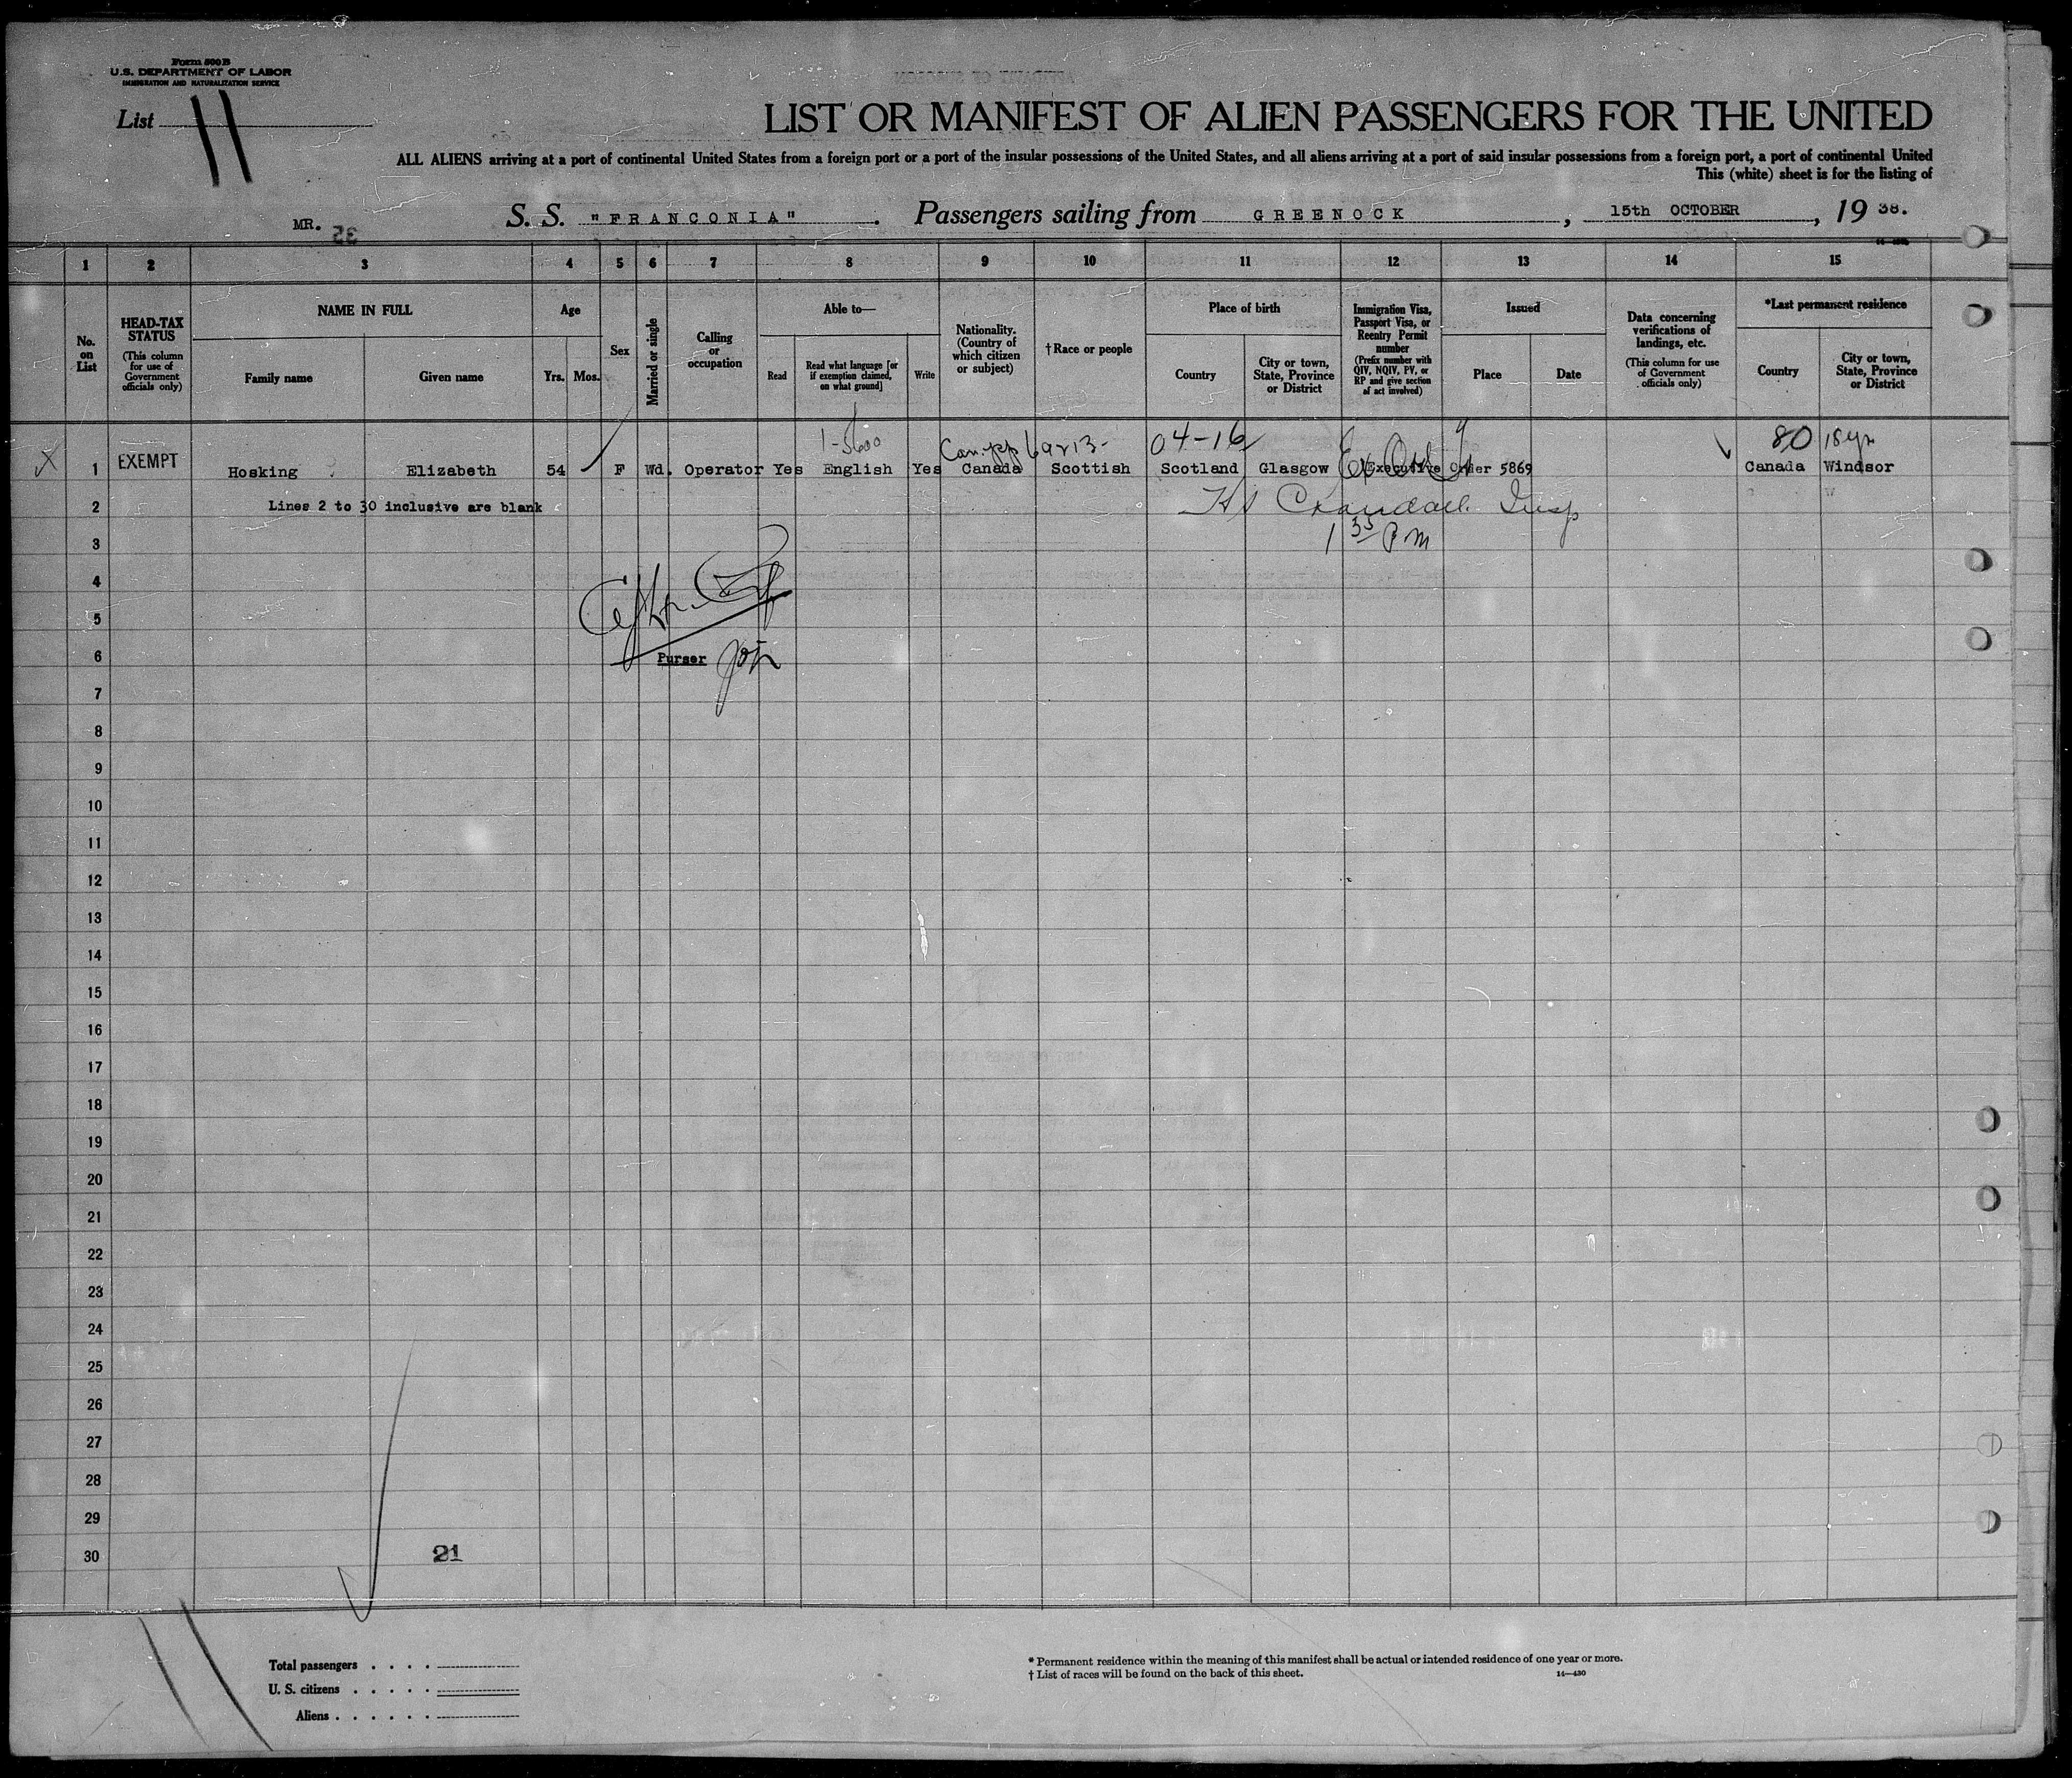 Form 500 B
U.S. DEPARTMENT OF LABOR
IMMIGRATION AND NATURALIZATION SERVICE
List 11
LIST OR MANIFEST OF ALIEN PASSENGERS FOR THE UNITED
ALL ALIENS arriving at a port of continental United States from a foreign port or a port of the insular possessions of the United States, and all aliens arriving at a port of said insular possessions from a foreign port, a port of continental United
This (white) sheet is for the listing of
MR. 35 S. S. "FRANCONIA" . Passengers sailing from GREENOCK , 15th OCTOBER , 19 38.
1 2 3 4 5 6 7 8 9 10 11 12 13 14 15
No. on List
HEAD-TAX STATUS
(This column for use of Government officials only)
NAME IN FULL
Family name
Given name
Age
Yrs. Mos.
Sex
Married or single
Calling or occupation
Able to—
Read
Read what language [or if exemption claimed, on what ground]
Write
Nationality. (Country of which citizen or subject)
†Race or people
Place of birth
Country
City or town, State, Province or District
Immigration Visa, Passport Visa, or Reentry Permit number
(Prefix number with QIV, NQIV, PV, or RP and give section of act involved)
Issued
Place
Date
Data concerning verifications of landings, etc.
(This column for use of Government officials only)
*Last permanent residence
Country
City or town, State, Province or District
1-5600 Can. pp 04-16 Ex Ord 80 18 yr
1 EXEMPT Hosking Elizabeth 54 F Wd. Operator Yes English Yes Canada Scottish Scotland Glasgow Executive Order 5869 Canada Windsor
2 Lines 2 to 30 inclusive are blank
Crandall Insp
3
1 35 P m
4
5
6 Purser
7
8
9
10
11
12
13
14
15
16
17
18
19
20
21
22
23
24
25
26
27
28
29
30 21
Total passengers . . . .
U. S. citizens . . . . .
Aliens . . . . . .
* Permanent residence within the meaning of this manifest shall be actual or intended residence of one year or more.
† List of races will be found on the back of this sheet. 14—430